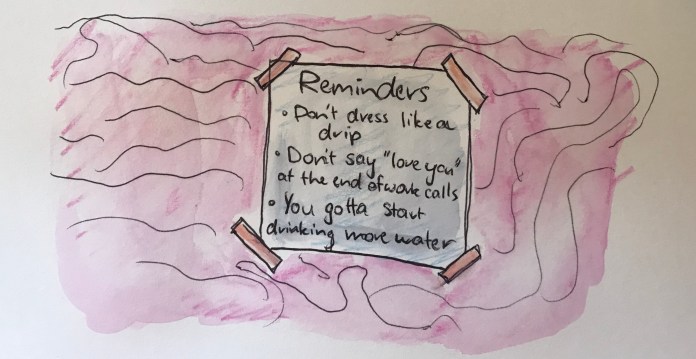 Reminders
• Don't dress like a
drip
• Don't say "love you"
at the end of work calls
• You gotta start
drinking more water